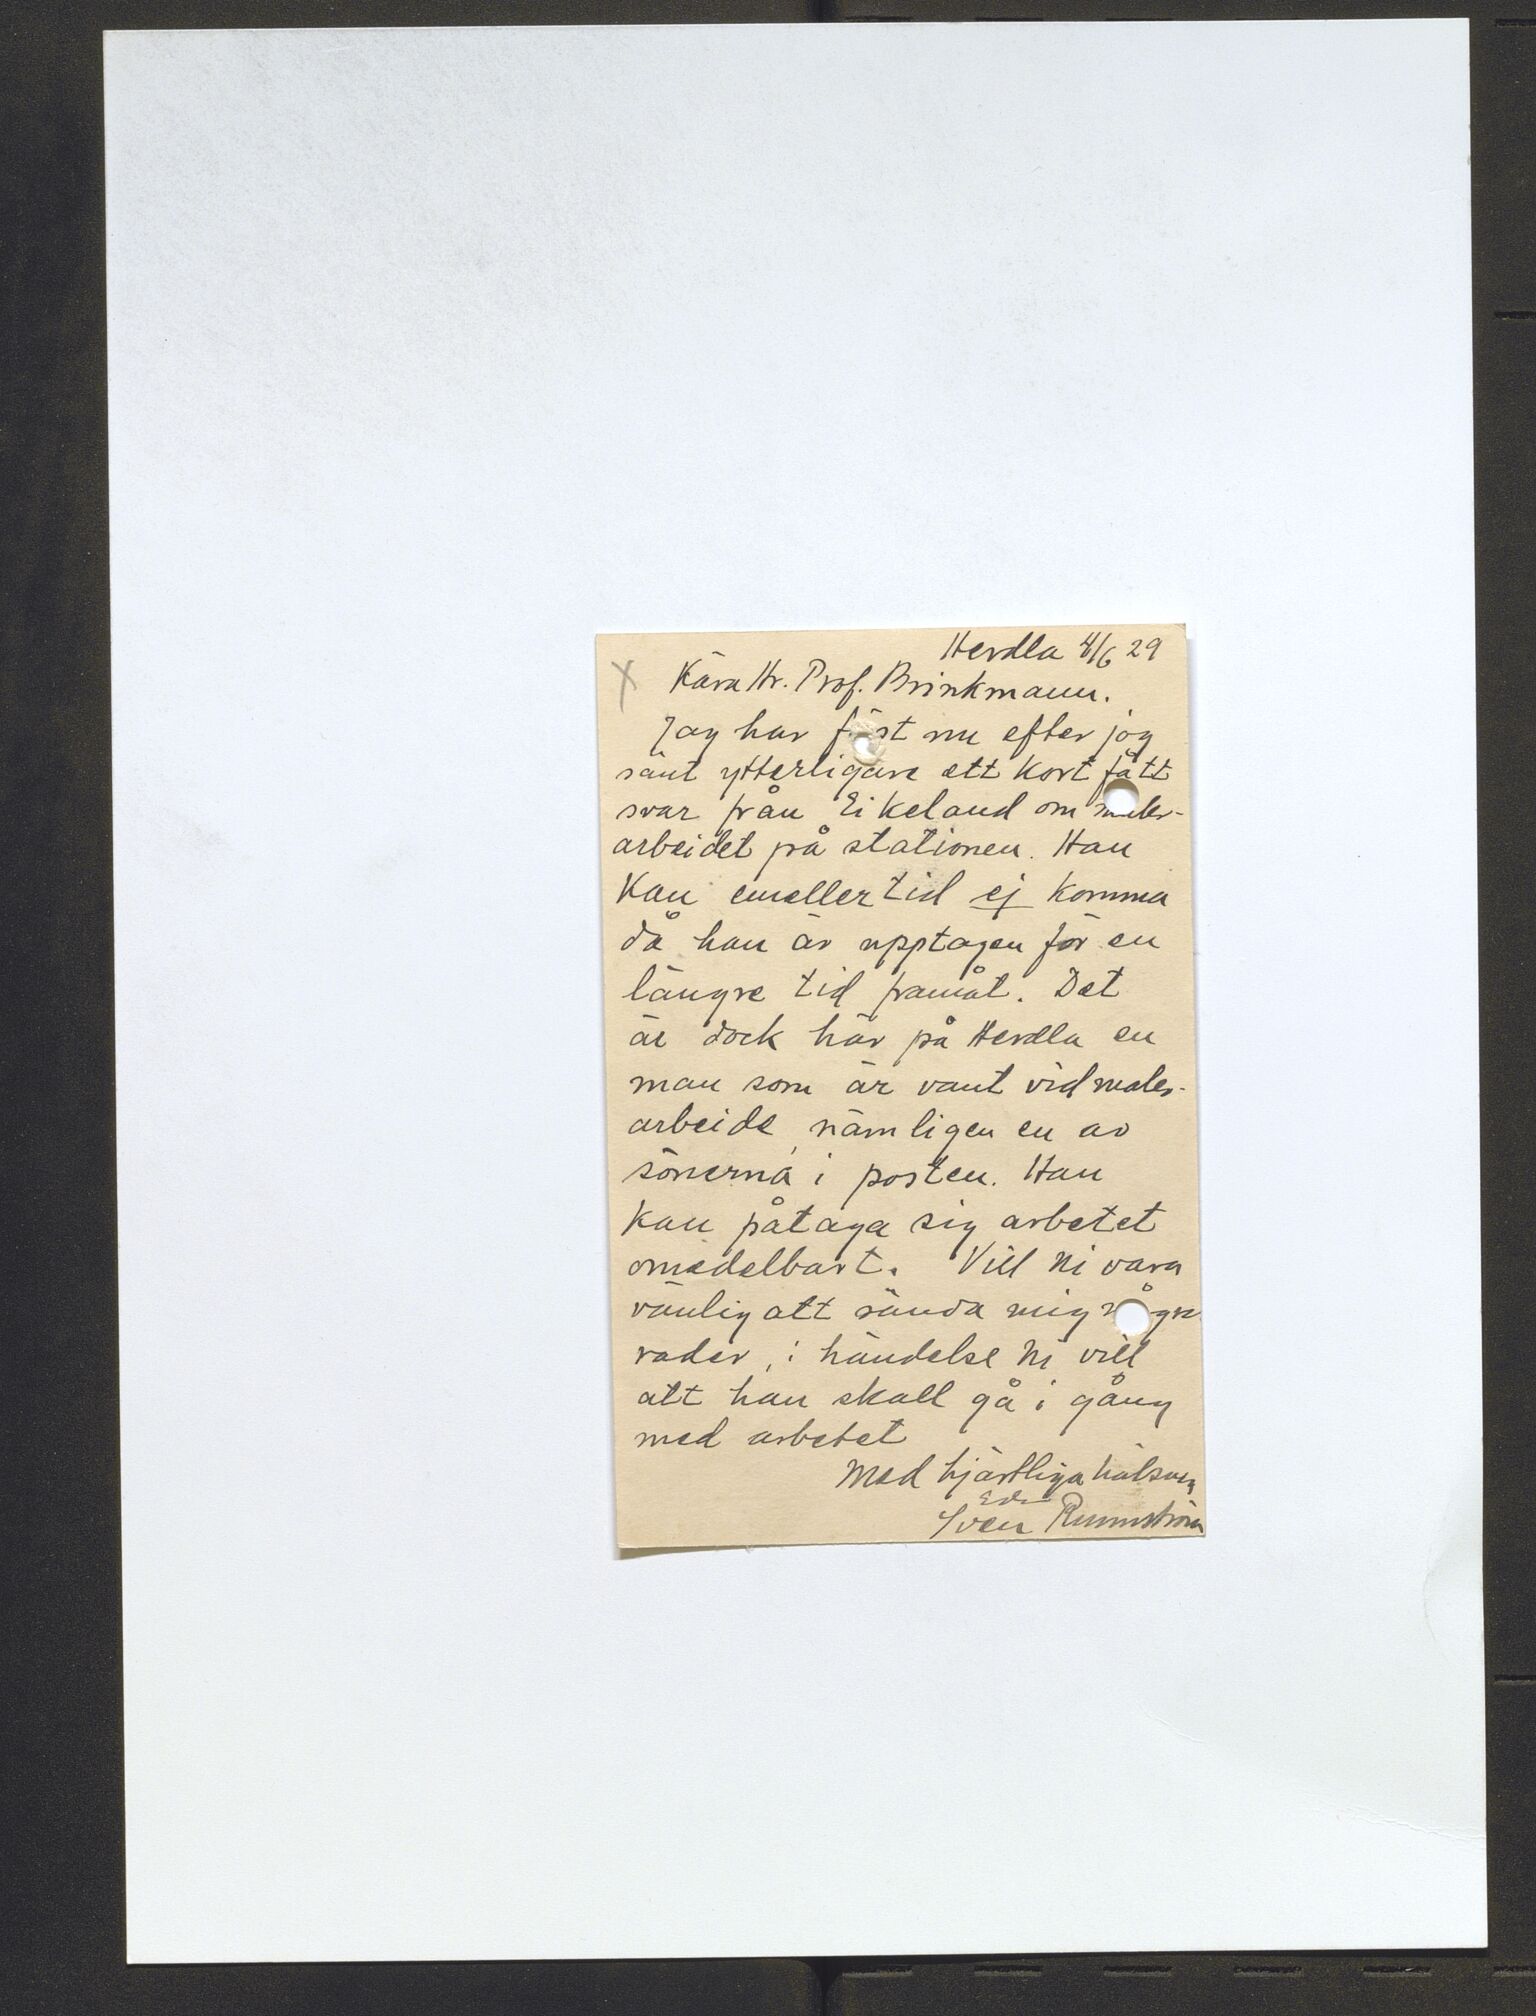 Herdla 4/6 29
X Kära Hr. Prof. Brinkmann.
Jag har först nu efter jog
sänt ytterligare ett kort fått
svar från Eikeland om maler-
arbeidet på stationen. Han
kan emellertid ej komma
då han är upptagen för en
längre tid framåt. Det
är dock här på Herdla en
man som är vant vid maler-
arbeide, nämligen en av
sönerna i posten. Han
kan påtaga sig arbetet
omedelbart. Vill Ni vara
vänlig att sända mig några
rader, i händelse Ni vill
att han skall gå i gång
med arbetet
Med hjärtliga hälsnng
Eder
Sven Runnström